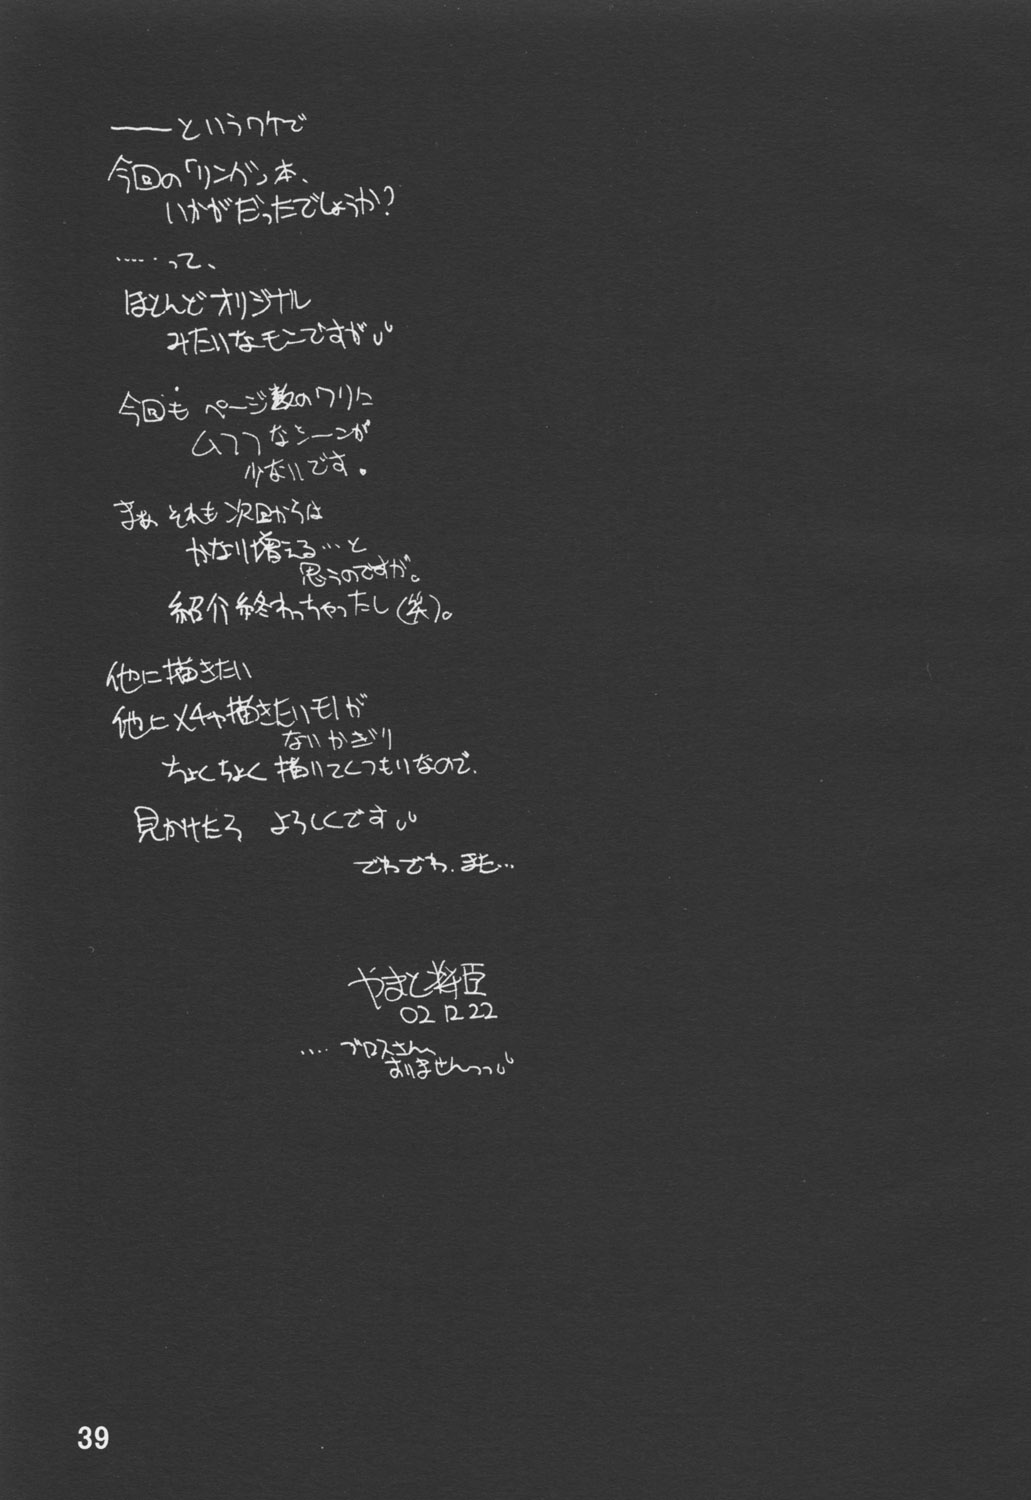 ――というワケで
今回の「リンガ」本、
いかがだったでしょうか?
‥‥‥って、
ほとんどオリジナル
みたいなモンですが
今回も ページ数のワリに
ムフフなシーンが
少ないです。
まぁ それも次回からは
かなり増える…と
思うのですが。
紹介終わっちゃったし(笑)。
他に描きたい
他にメチャ描きたいモノが
ないかぎり
ちょくちょく描いてくつもりなので、
見かけたら よろしくです
でわでわ、また…
やまと
02 12 22
‥‥ブロスさん、
おりませんっっ
39